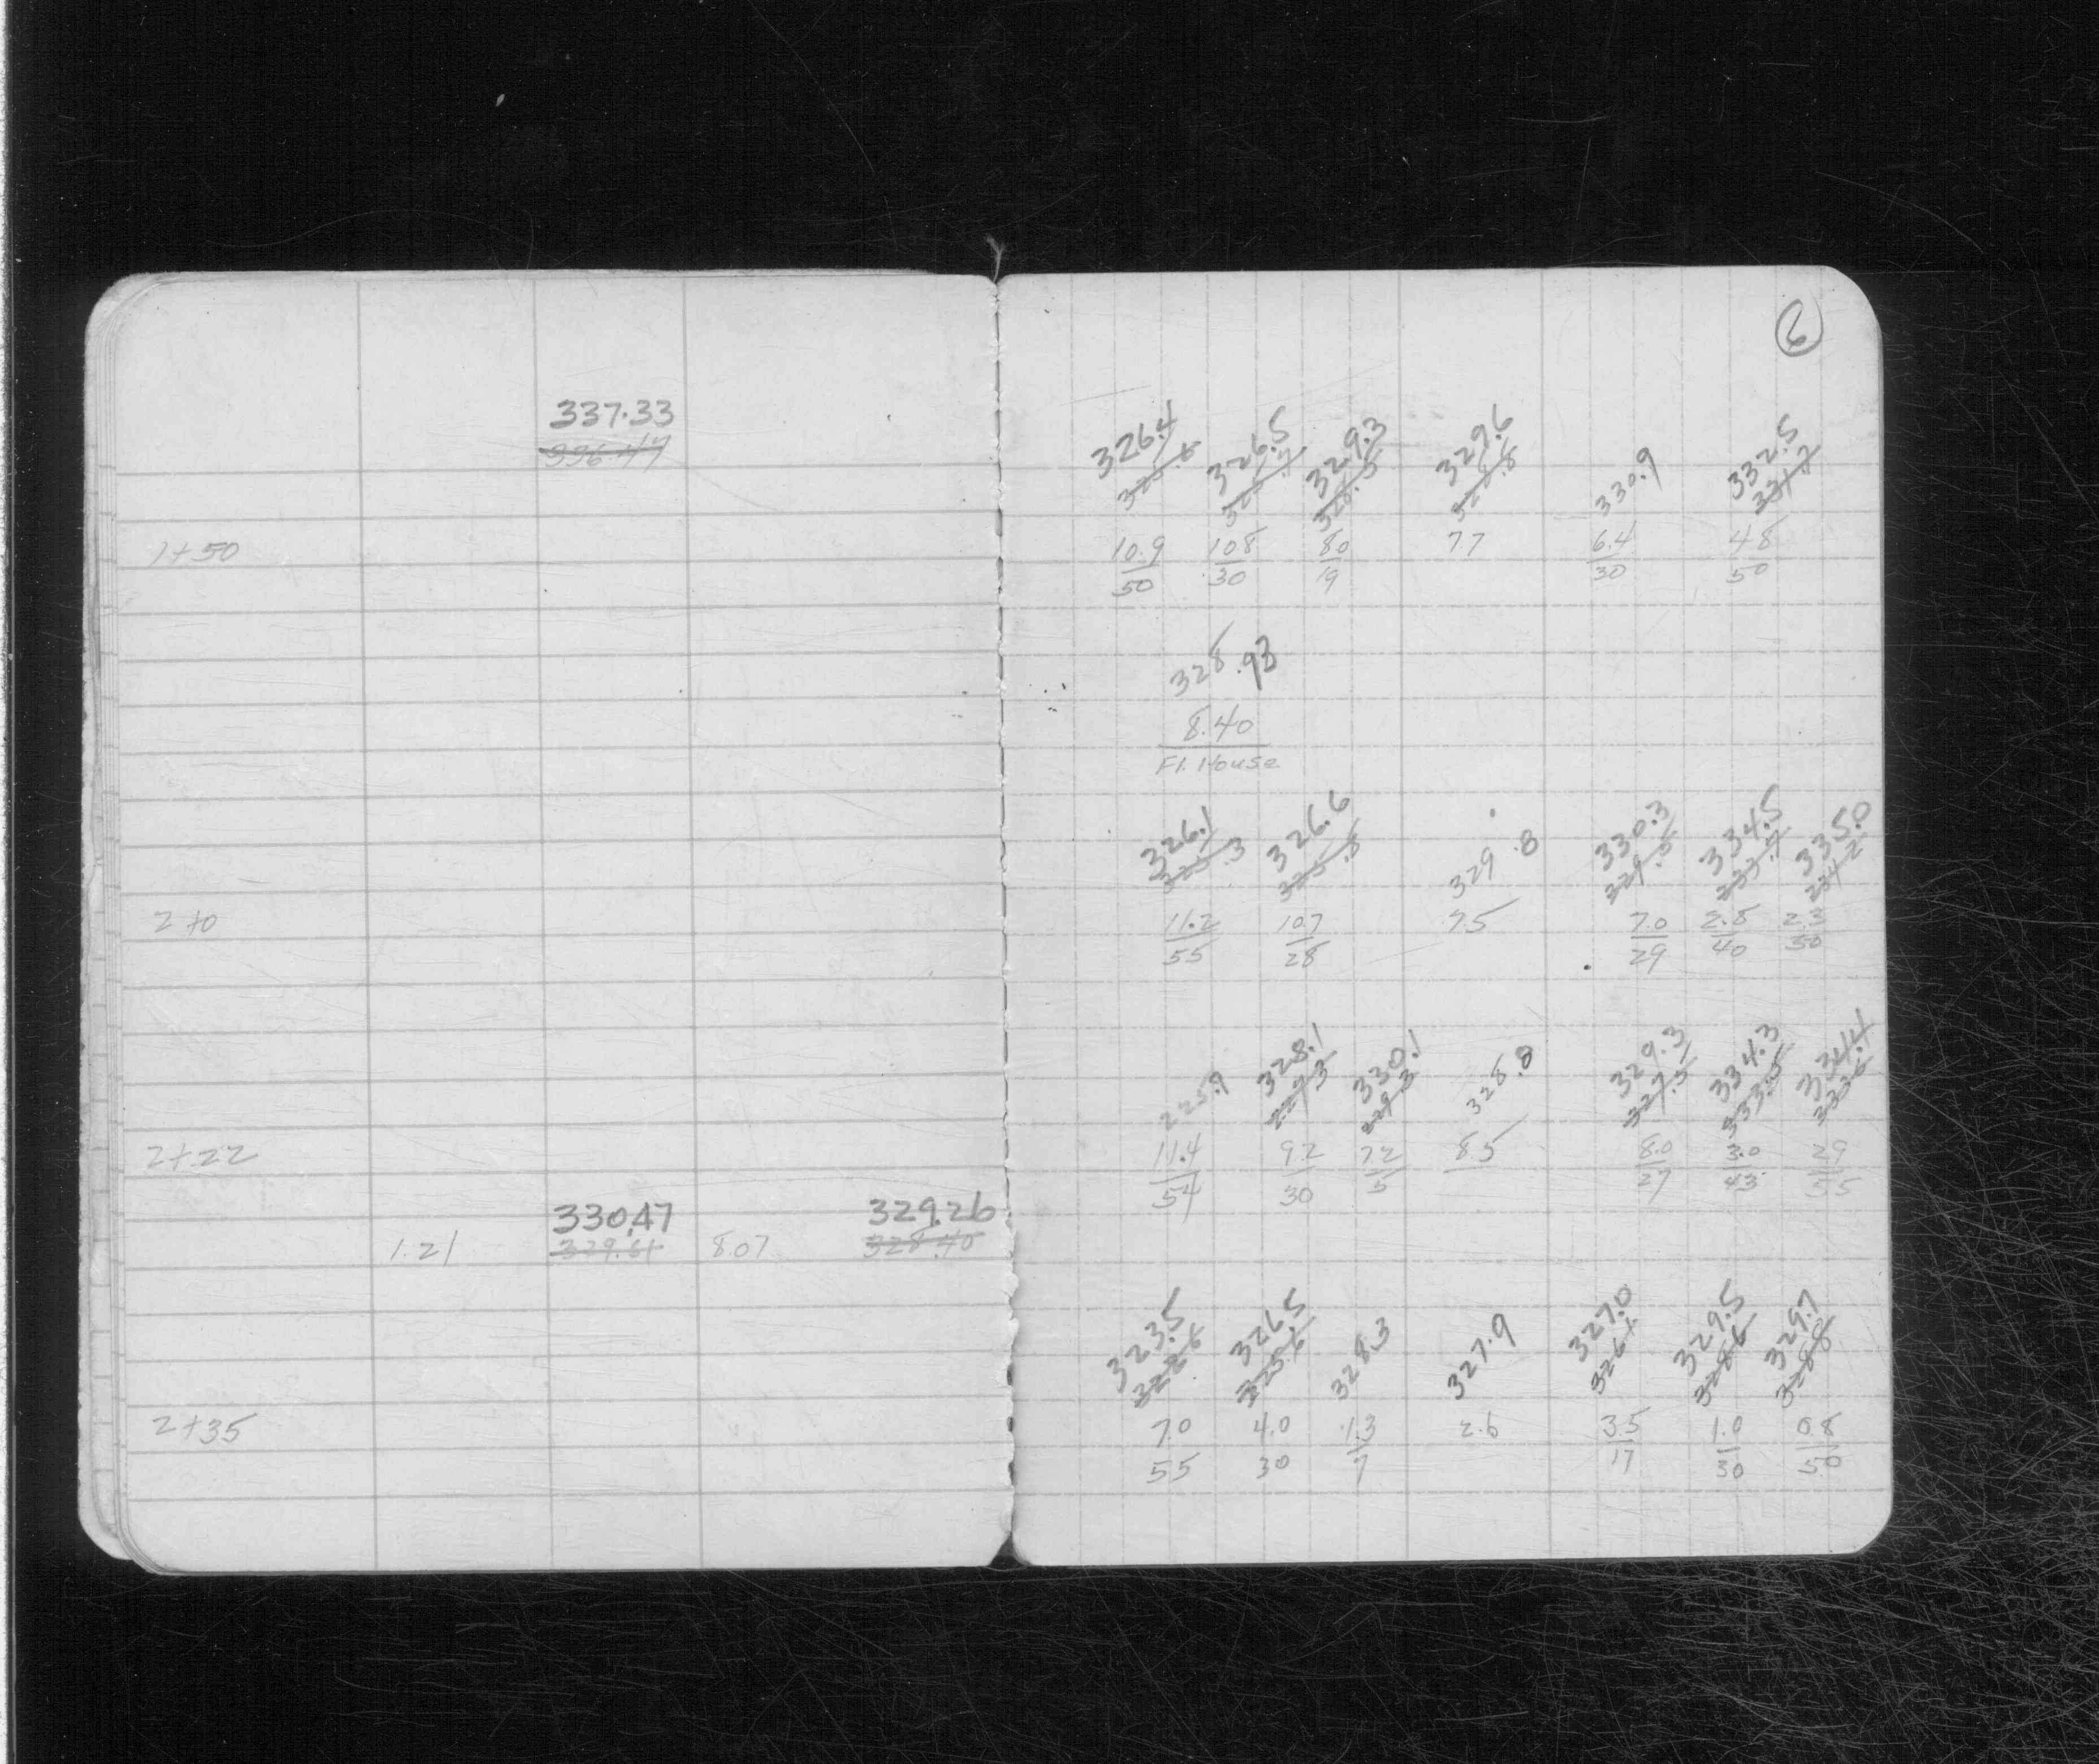 6
337.33
336.47
326.4 326.5 329.3 329.6 330.9 332.5
325.6 325.7 328.5 328.8 331.7
1+50 10.9 10.8 8.0 7.7 6.4 4.8
50 30 19 30 50
328.93
8.40
Fl. House
326.1 326.6 329.8 330.3 334.5 335.0
325.3 325.8 329.5 333.7 334.2
2+0 11.2 10.7 7.5 7.0 2.8 2.3
55 28 29 40 50
225.9 328.1 330.1 328.8 329.3 334.3 334.4
227.3 229.3 327.5 333.5 333.6
2+22 11.4 9.2 7.2 8.5 8.0 3.0 2.9
54 30 5 27 43 55
330.47 329.26
1.21 329.61 8.07 328.40
323.5 326.5 328.3 327.9 327.0 329.5 329.7
322.6 325.6 326.1 328.6 328.8
2+35 7.0 4.0 1.3 2.6 3.5 1.0 0.8
55 30 7 17 30 50